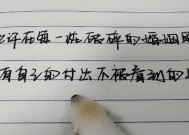 许在每一粒破碎的婚姻里
有自己的付出不被看到的